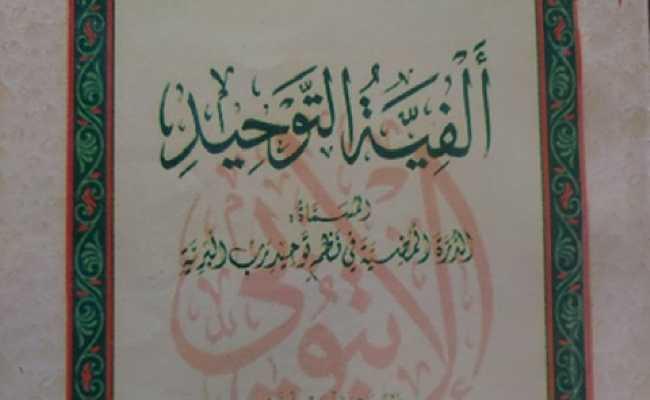 أَلْفِيَّةُ التَّوْحِيدِ
المُسَمَّاةُ:
الدُّرَّةُ المُضِيَّةُ فِي نَظْمِ تَوْحِيدِ رَبِّ البَرِيَّةِ